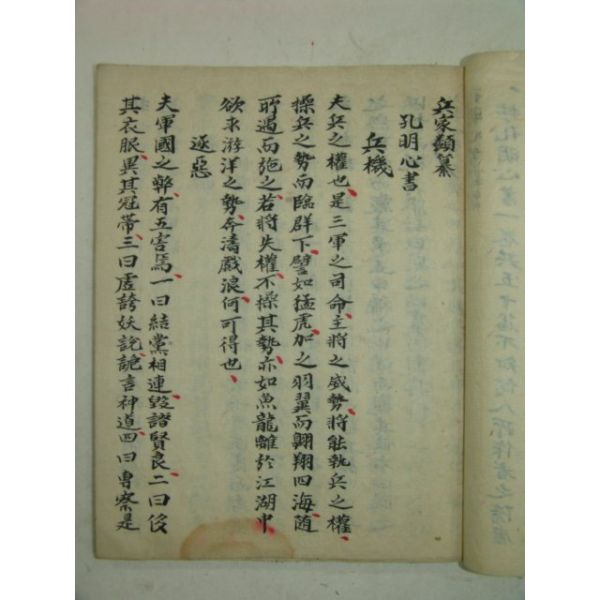 兵家類纂
孔明心書
兵機
夫兵之權也是三軍之司命主將之威勢將能執兵之權
操兵之勢而臨群下譬如猛虎加之羽翼而翺翔四海随
所遇而施之若將失權不操其勢亦如魚龍離於江湖中
欲求游洋之勢奔濤戲浪何可得也
逐惡
夫軍國之弊有五害焉一曰結黨相連毁譖賢良二曰侈
其衣服異其冠帶三曰虛誇妖說詭言神道四曰專察是